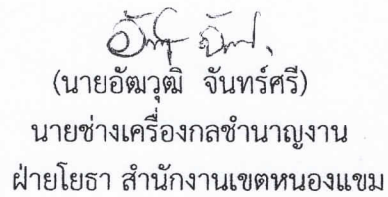 (นายอัฒวุฒิ จันทร์ศรี)
นายช่างเครื่องกลชำนาญงาน
ฝ่ายโยธา สำนักงานเขตหนองแขม